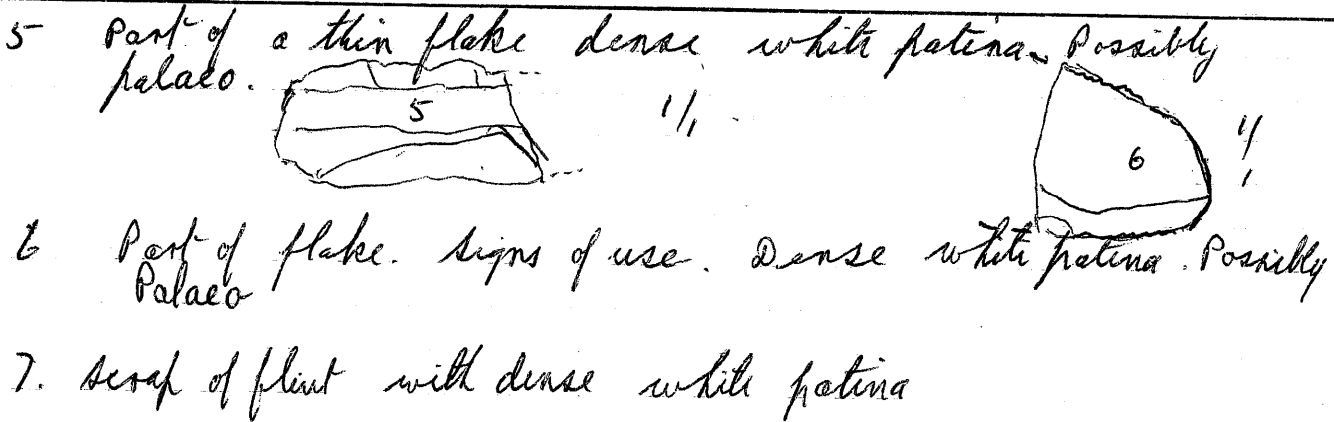 5 Part of a thin flake dense white patina. Possibly
palaeo.
5
1/1
6
1/1
6 Part of flake. Signs of use. Dense white patina. Possibly
Palaeo
7. scrap of flint with dense white patina